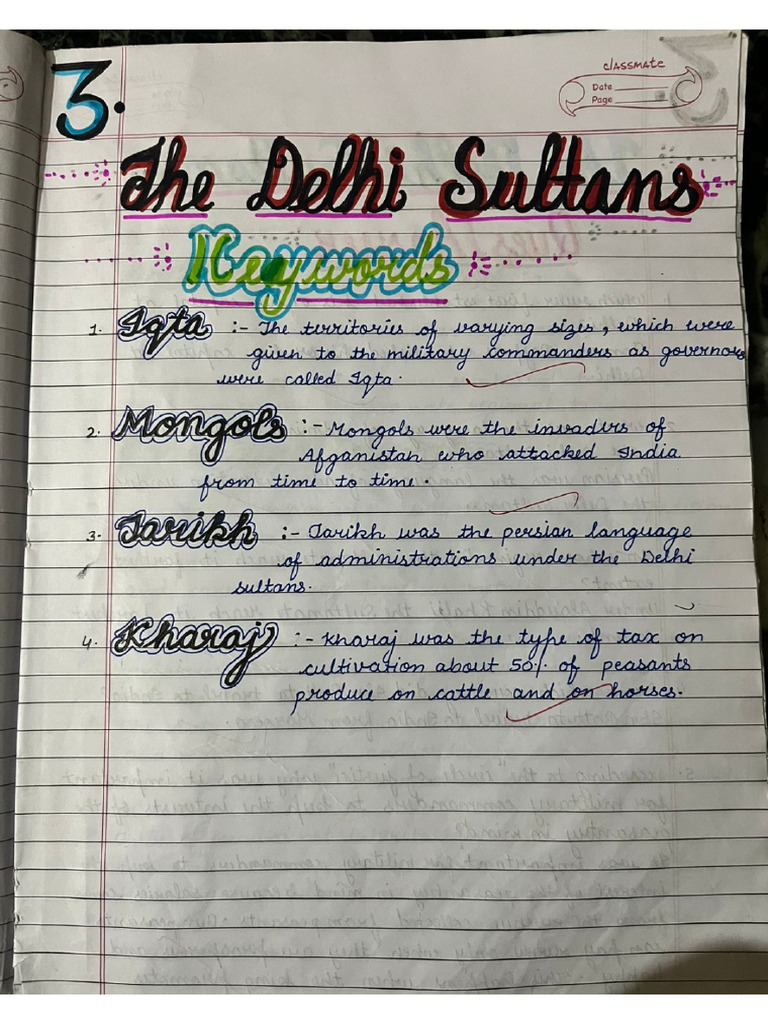 classmate
Date
Page
3.
The Delhi Sultans
Keywords
1. Iqta :- The territories of varying sizes, which were
given to the military commanders as governors
were called Iqta.
2. Mongols :- Mongols were the invaders of
Afganistan who attacked India
from time to time.
3. Tarikh :- Tarikh was the persian language
of administrations under the Delhi
sultans.
4. Kharaj :- Kharaj was the type of tax on
cultivation about 50% of peasants
produce on cattle and on horses.